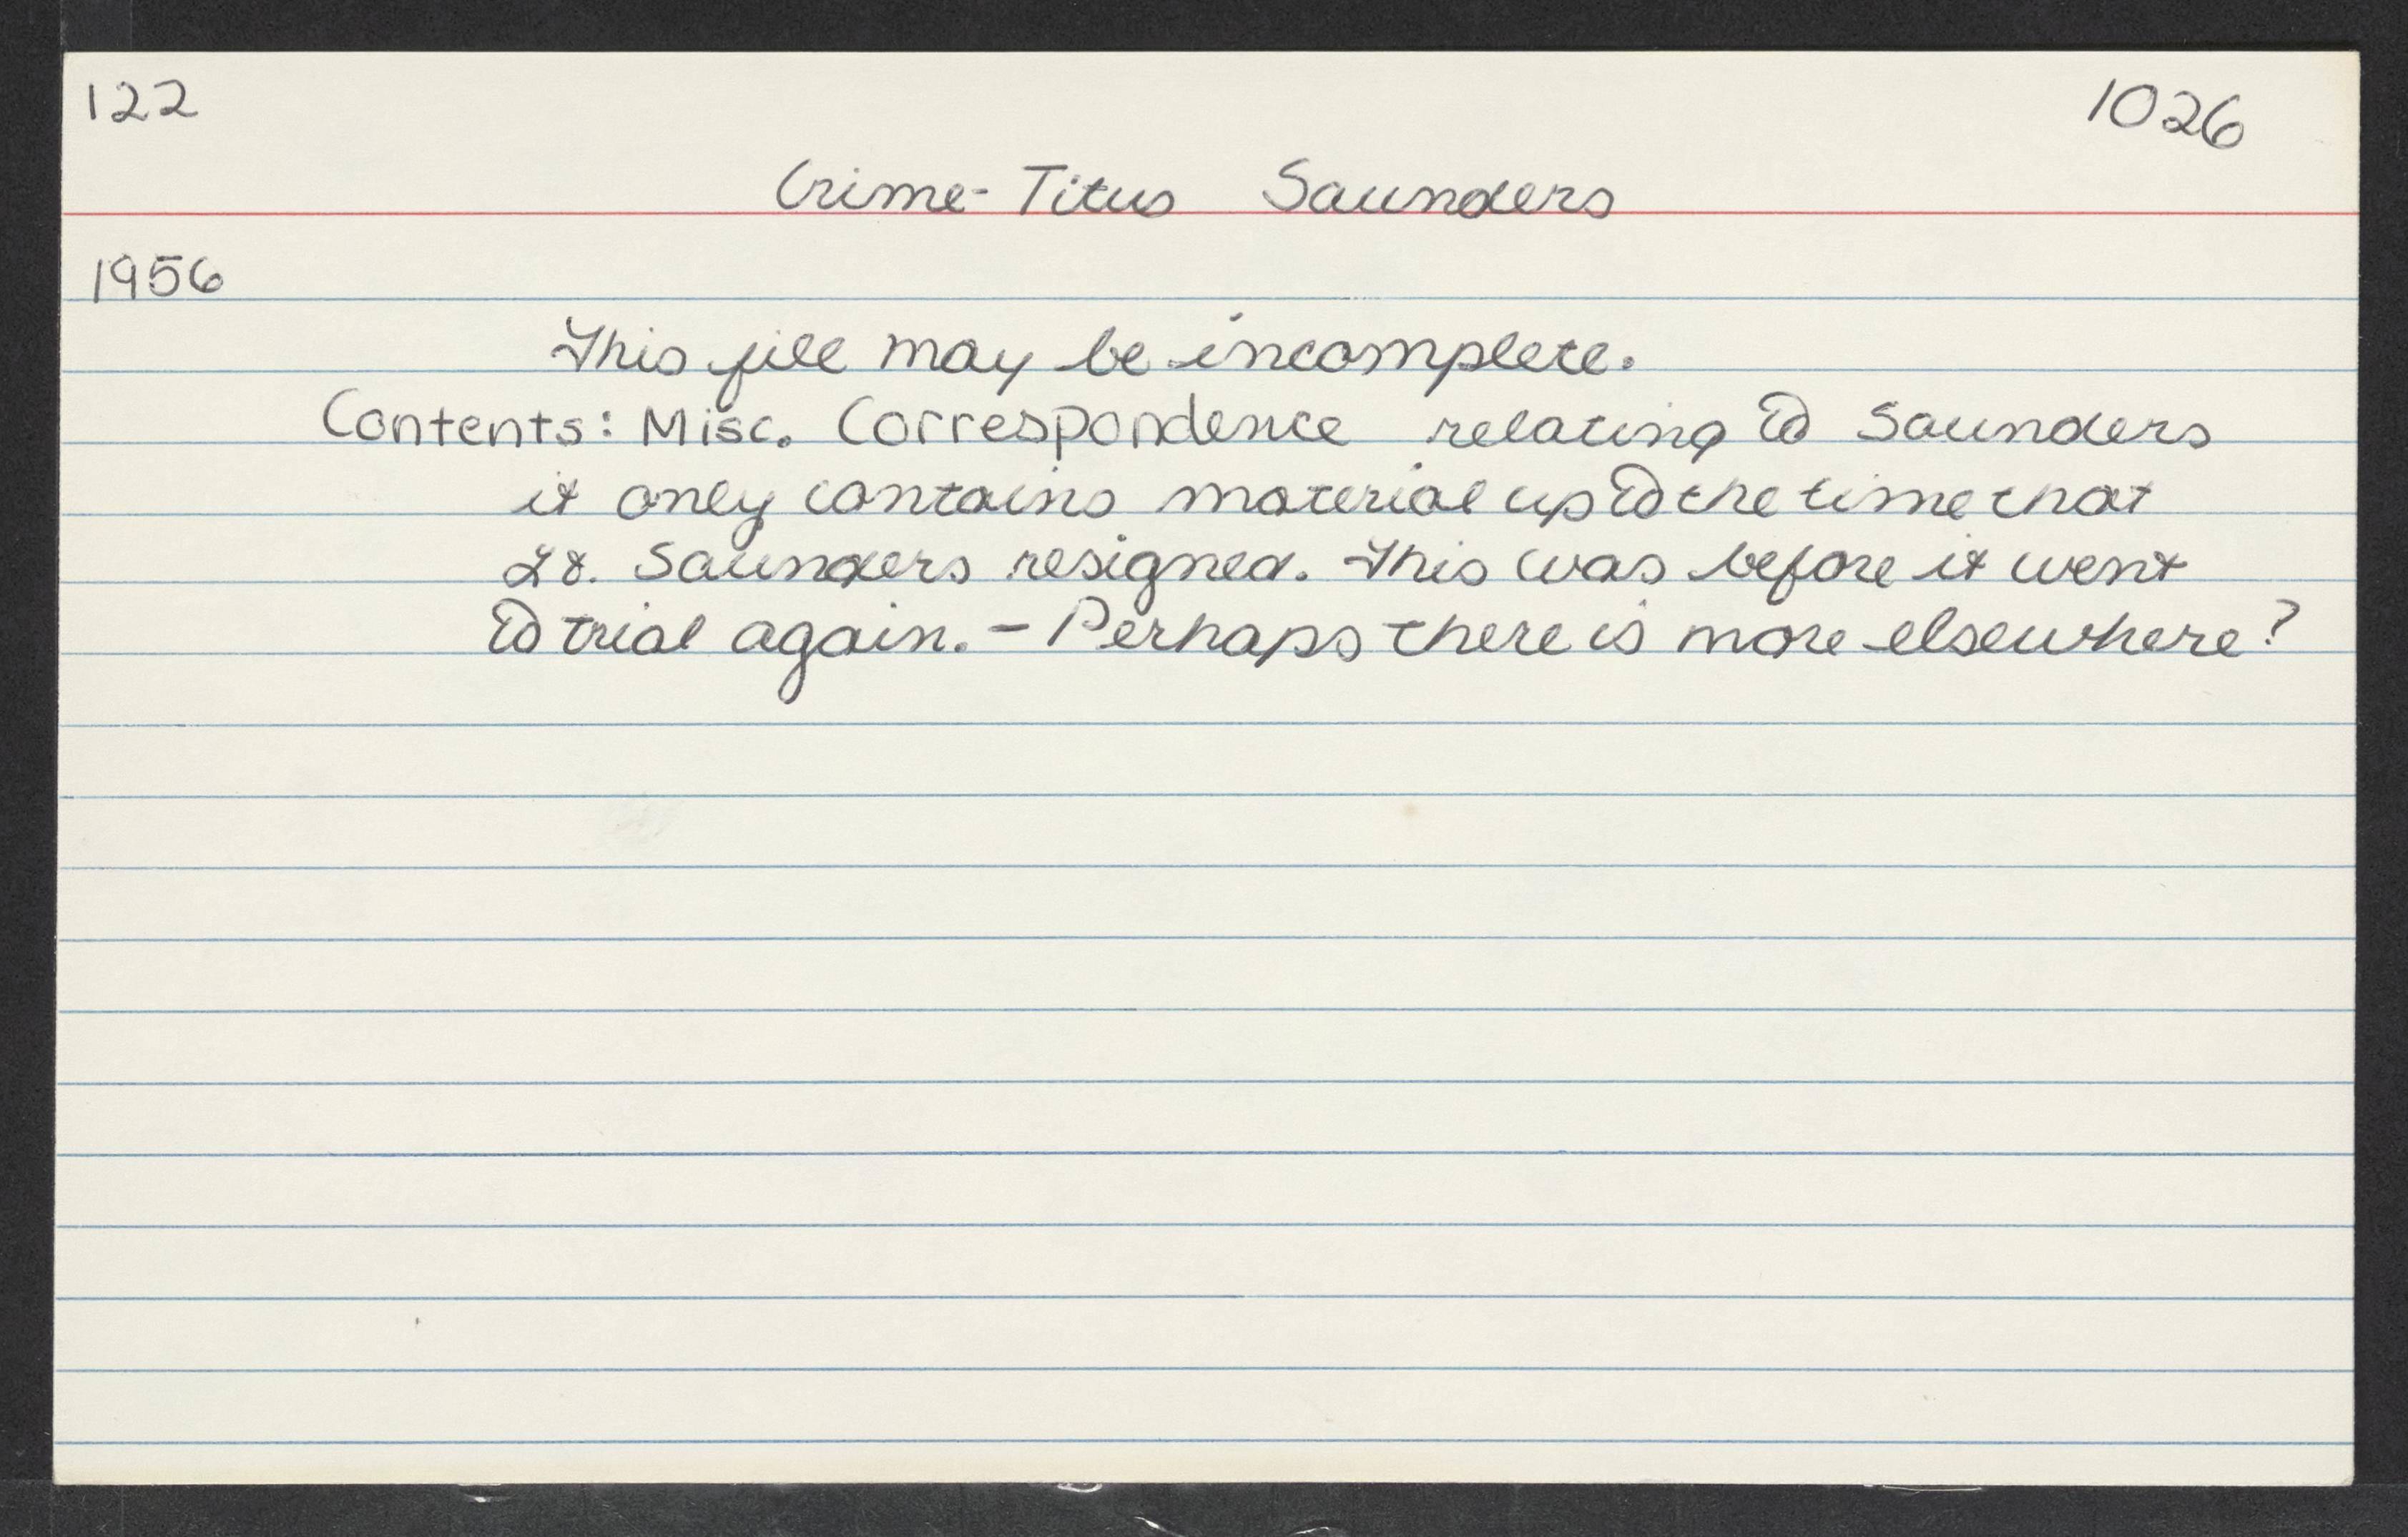 122
1026
Crime- Titus Saunders
1956
This file may be incomplete.
Contents: Misc. Correspondence relating to Saunders
it only contains material up to the time that
Lt. Saunders resigned. This was before it went
to trial again. - Perhaps there is more elsewhere?